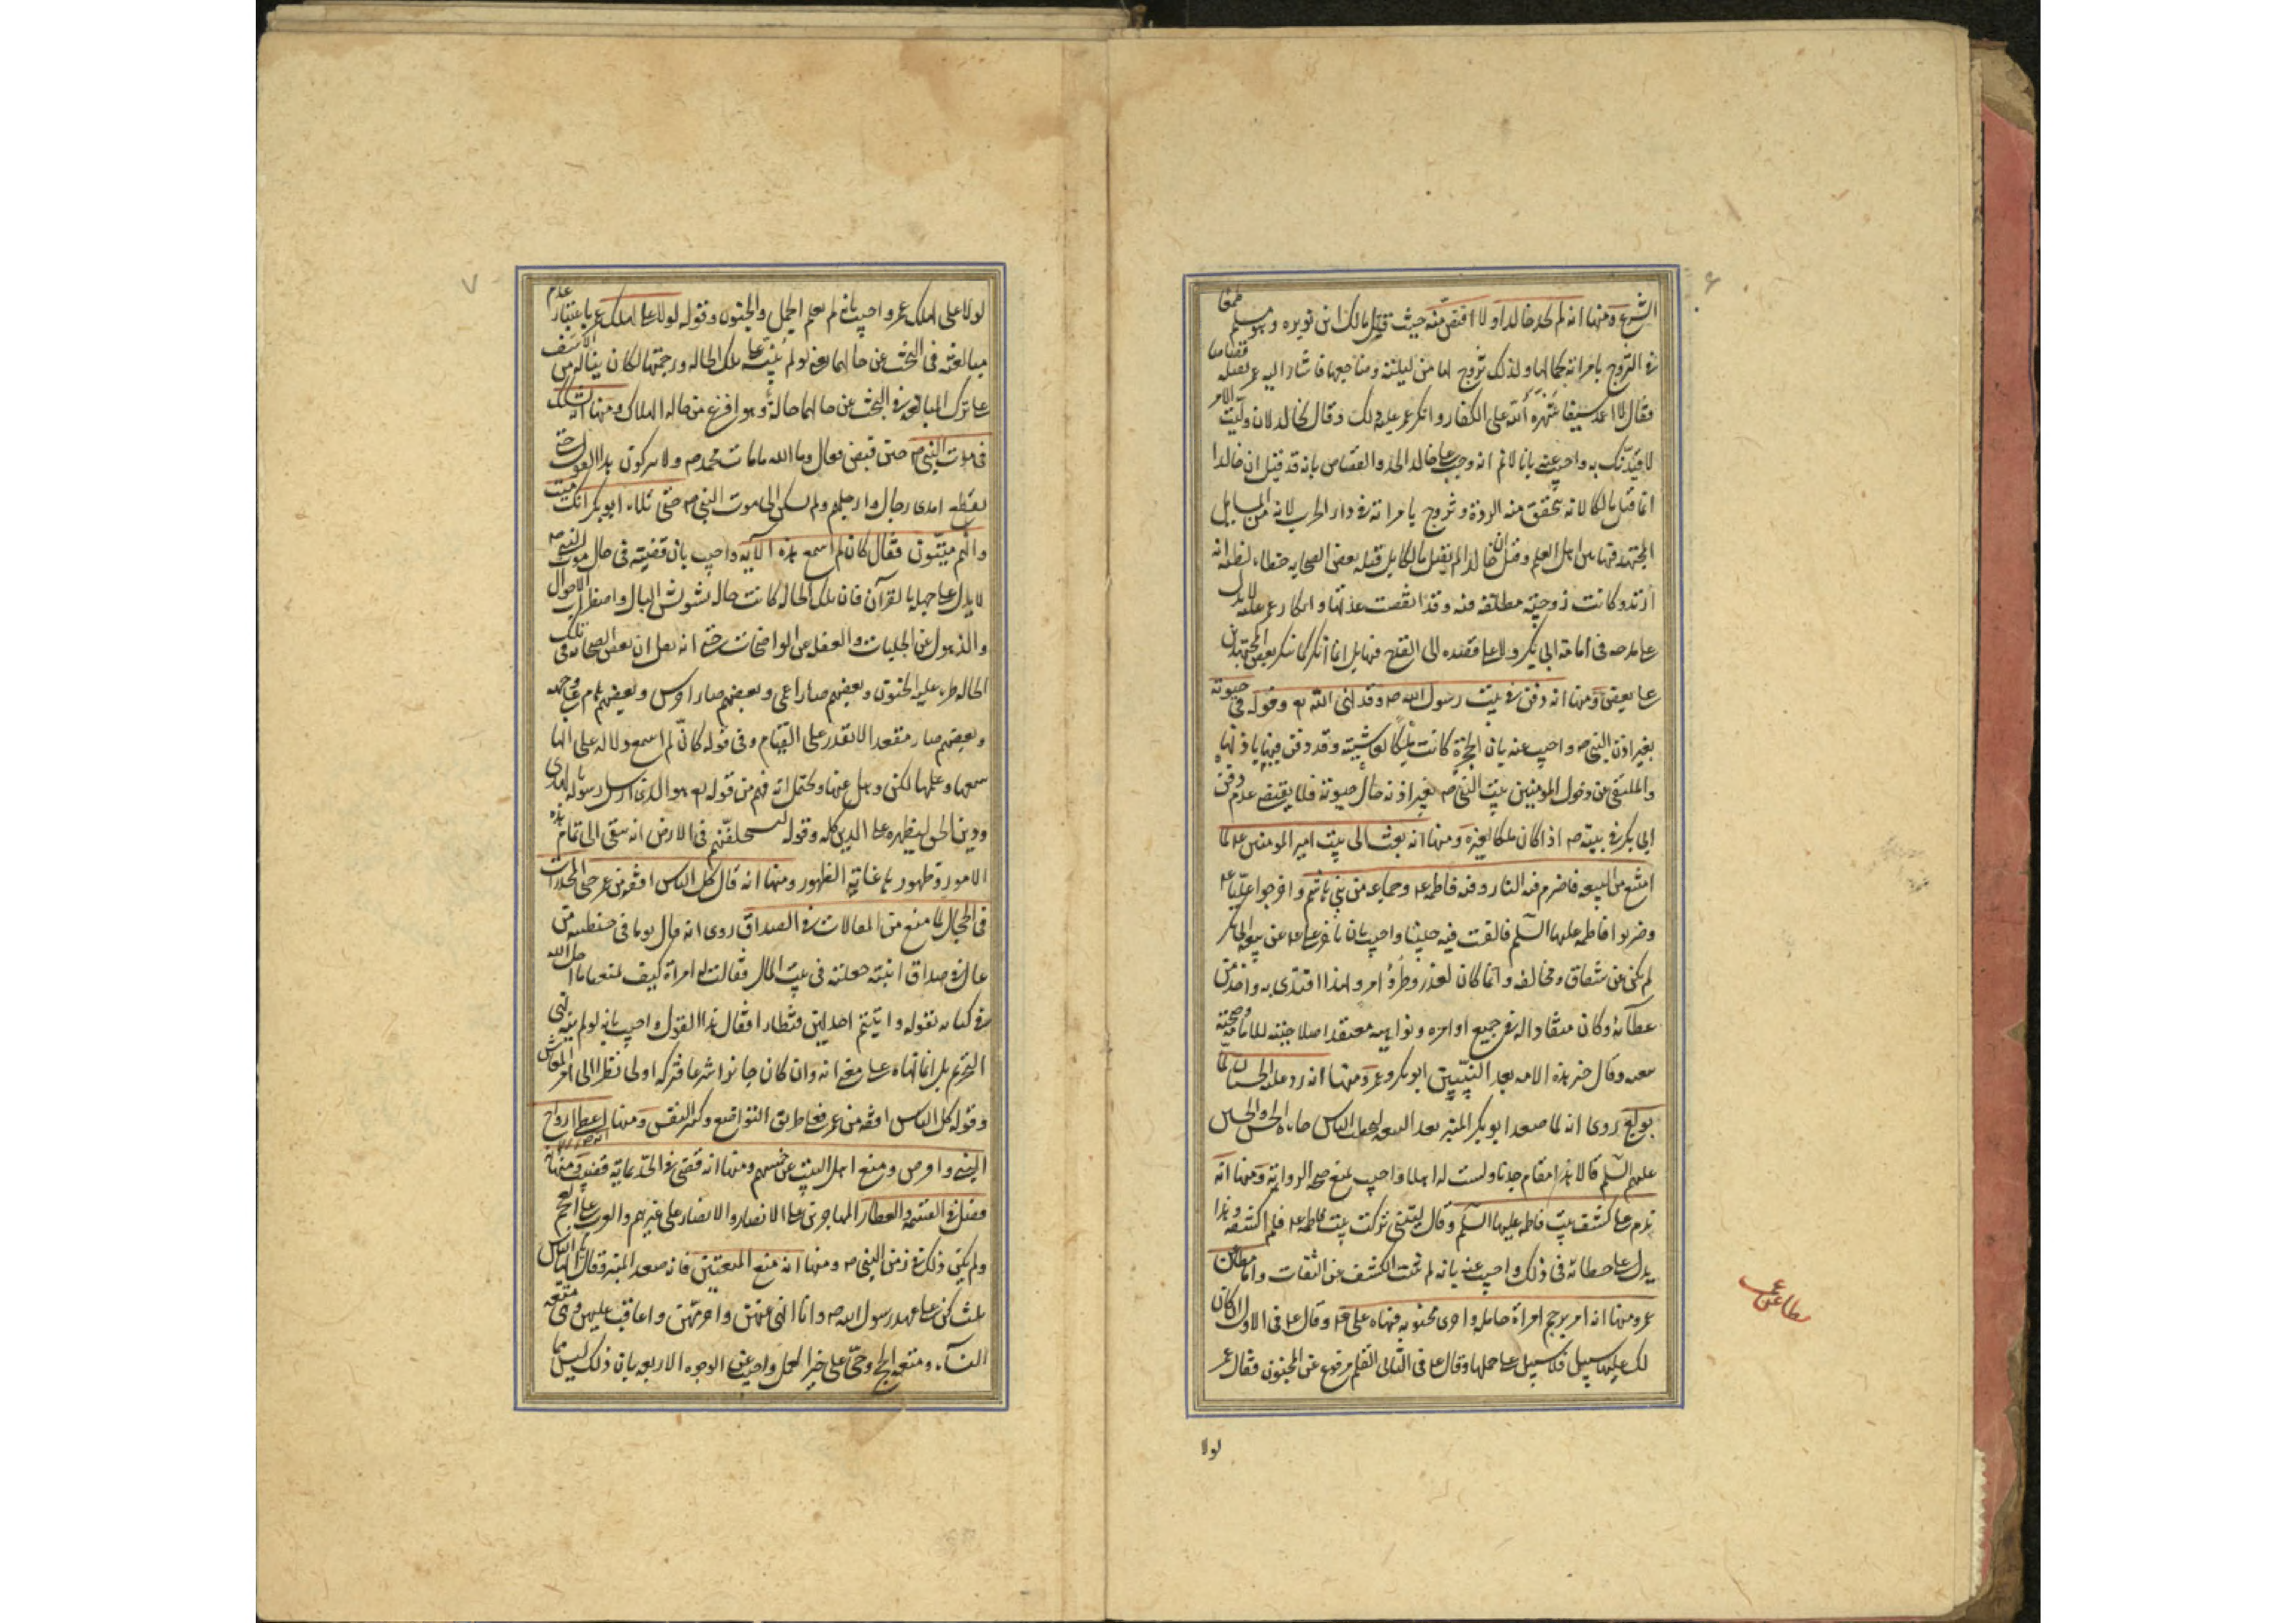 ۶
الشرع ومنها انه لم يحد خالدا ولا اقتص منه حيث قتل مالك ابن نويره وهو مسلم طمعا
فى التزوج بامراته لجمالها ولذلك تزوج بها من ليلته وضاجعها فاشار اليه عمر بقتله قصاصا
فقال لا اغمد سيفا شهره الله على الكفار وانكر عمر عليه ذلك وقال لخالد لان وليت الامر
لاقيدنك به واجيب عنه بانا لا نم انه وجب على خالد الحد والقصاص بانه قد قيل ان خالدا
انما قتل مالكا لانه تحقق منه الردة وتزوج بامراته فى دار الحرب لانه من المسايل
المجتهد فيها بين اهل العلم وقيل ان خالدا لم يقتل مالكا بل قتله بعض الصحابه خطاء لظنه انه
ارتد وكانت زوجته مطلقه منه وقد انقضت عدتها وانكار عمر عليه لا يدل
على قدحه فى امامة ابى بكر ولا على قصده الى القدح فيها بل انما انكر كما ينكر بعض المجتهدين
على بعض ومنها انه دفن فى بيت رسول الله ص وقد نهى الله تع دخوله فى حيوته
بغير اذن النبى ص واجيب عنه بان الحجرة كانت ملكا لعايشة وقد دفن فيها باذنها
والمنهى عن دخول المومنين بيت النبى ص بغير اذنه حال حيوته فلا يقتضى عدم دفن
ابى بكر فى بيته ص اذا كان ملكا لغيره ومنها انه بعث الى بيت امير المومنين ع لما
امتنع من البيعه فاضرم فيه النار وفيه فاطمه ع وجماعه من بنى هاشم واخرجوا عليا ع
وضربوا فاطمه عليها السلم فالقت فيه جنينا واجيب بان تاخر على ع عن بيعة ابى بكر
لم يكن عن شقاق ومخالفه وانما كان لعذر وطرو امر ولهذا اقتدى به واخذ من
عطائه وكان منقادا له فى جميع اوامره ونواهيه معتقدا صلاحيته للامامة وصحة
بيعته وقال خير هذه الامه بعد النبيين ابوبكر وعمر ومنها انه رد عليه الحسنان لما
بويع روى انه لما صعد ابوبكر المنبر بعد البيعه ليخطب الناس جاءه الحسن والحسين
عليهم السلم قالا هذا مقام جدنا ولست له اهلا واجيب بمنع صحه الرواية ومنها انه
ندم على كشف بيت فاطمه عليها السلم وقال ليتنى تركت بيت فاطمه ع فلم اكشفه وهذا
يدل على خطائه فى ذلك واجيب عنه بانه لم يثبت الكشف عن الثقات واما مطاعن
عمر ومنها انه امر برجم امراة حامل واخرى مجنونه فنهاه على ع وقال ع فى الاول ان كان
لك عليها سبيل فلا سبيل على حملها وقال ع فى الثانى القلم مرفوع عن المجنون فقال عمر
لولا
مطاعن عمر
۷
لولا على لهلك عمر واجيب بانه لم يعلم الحمل والجنون وقوله لولا على لهلك عمر باعتبار عدم
مبالغته فى البحث عن حالهما يعنى لو لم ينبه على تلك الحاله ورجمتها لكان يناله من الاسف
على ترك المبالغه فى البحث عن حالهما حالة وهو افزع من حاله الهلاك ومنها انه تشكك
فى موت النبى ص حين قبض فقال والله ما مات محمد ص ولا يترك هذا القول حتى
يقطع ايدى رجال وارجلهم ولم يسكن الى موت النبى ص حتى تلاء ابوبكر انك ميت
وانهم ميتون فقال كان لم اسمع هذه الآيه واجيب بان قضيته فى حال موت النبى ص
لا يدل على جهله بالقرآن فان تلك الحاله كانت حال تشويش البال واضطراب الاحوال
والذهول عن الجليات والغفله عن الواضحات حتى انه نقل ان بعض الصحابه فى تلك
الحاله طرء عليه الجنون وبعضهم صار اعمى وبعضهم صار اخرس وبعضهم هام على وجهه
وبعضهم صار مقعدا لا يقدر على القيام وفى قوله كان لم اسمع دلاله على انها
سمعها وعلمها لكن ذهل عنها ويحتمل انه فهم من قوله تع هو الذى ارسل رسوله بالهدى
ودين الحق ليظهره على الدين كله وقوله ليستخلفنهم فى الارض انه يبقى الى تمام هذه
الامور وظهورها غاية الظهور ومنها انه قال كل الناس افقه من عمر حتى المخدرات
فى الحجال لما منع من المغالات فى الصداق روى انه قال يوما فى خطبته من
غالى فى صداق ابنته جعلته فى بيت المال فقالت له امراة كيف تمنعنا ما احل الله
فى كتابه بقوله واتيتم احديهن قنطارا فقال هذا القول واجيب بانه لم ينه نهى
التحريم بل انما نهاه على معنى انه وان كان جايزا شرعا فتركه اولى نظرا الى امر المعاش
وقوله كل الناس افقه من عمر فعلى طريق التواضع وكسر النفس ومنها انه اعطى ازواج
النبى واقرض ومنع اهل البيت عن خمسهم ومنها انه قضى فى الحد بمائة قضيب ومنها انه
فضل فى القسمه والعطاء المهاجرين على الانصار والانصار على غيرهم والعرب على العجم
ولم يكن ذلك فى زمن النبى ص ومنها انه منع المتعتين فانه صعد المنبر وقال ايها الناس
ثلث كن على عهد رسول الله ص وانا انهى عنهن واحرمهن واعاقب عليهن وهى متعه
النساء ومتعه الحج وحى على خير العمل واجيب عن الوجوه الاربعه بان ذلك ليس مما